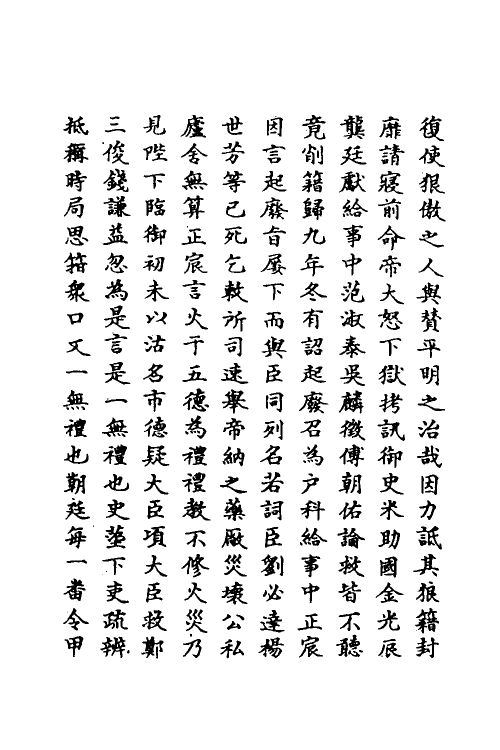 復使狠傲之人與賛平明之治哉因力詆其狼籍封
靡請寢前命帝大怒下獄拷訊御史米助國金光辰
龔廷獻給事中范淑泰吳麟徵傅朝佑論救皆不聽
竟削籍歸九年冬有詔起廢召為户科給事中正宸
因言起廢㫖屢下而與臣同列名若詞臣劉必達楊
世芳等已死乞敕所司速舉帝納之藥厰災壊公私
廬舍無算正宸言火于五德為禮禮教不修火災乃
見陛下臨御初未以沽名市德疑大臣項大臣救鄭
三俊錢謙益忽為是言是一無禮也史䇿下吏疏辨
抵稱時局思箝衆口又一無禮也朝廷每一畨令甲